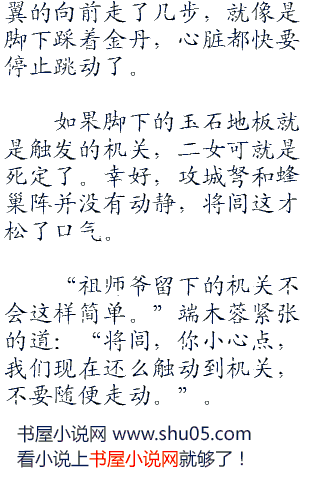 翼的向前走了几步，就像是
脚下踩着金丹，心脏都快要
停止跳动了。
如果脚下的玉石地板就
是触发的机关，二女可就是
死定了。幸好，攻城弩和蜂
巢阵并没有动静，将闾这才
松了口气。
“祖师爷留下的机关不
会这样简单。”端木蓉紧张
的道：“将闾，你小心点，
我们现在还么触动到机关，
不要随便走动。”。
书屋小说网 www.shu05.com
看小说上书屋小说网就够了！